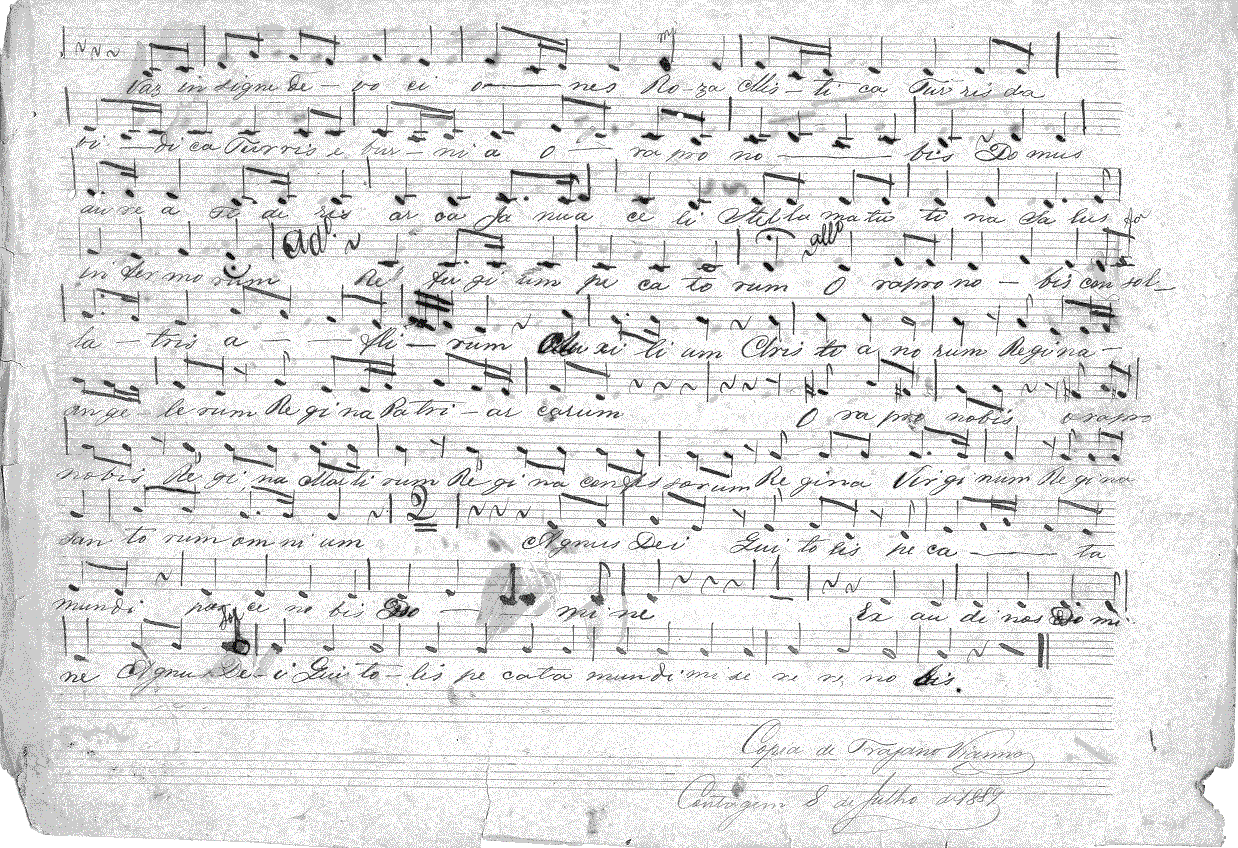 Vaz insigne de - vo ci o - nes Ro - za Mis - ti ca Turris da
bi - di ca Turris e bur - ni a O - ra pro no - bis Do mus
au re a fe de ris ar ca Ja nua ce li Stella matu ti na Sa lus
ad.º allº
in fer mo rum Re fu gi um pe ca to rum O ra pro no - bis con sol -
la - tris a - - fli - rum Au xi li um Chris to a no rum Regina -
ange - le rum Re gi na Patri - ar carum O ra pro nobis o rapro
nobis Re gi na Marti rum Re gi na confessorum Re gina Virgi num Re gi na
2
san to rum om ni um Agnus Dei Qui to lis pe ca - ta
mundi par ce no bis Do - mi ne Ex au di nos Do mi
ne Agnu De - i Qui to - lis pe cata mundi mi se re re no bis.
Copia de Trajano Vianna
Contagem 8 de Julho d 1889